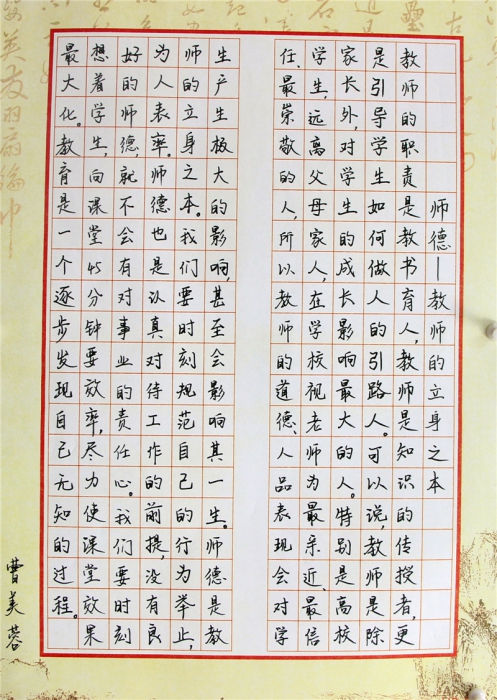 师德—教师的立身之本
教师的职责是教书育人,教师是知识的传授者,更
是引导学生如何做人的引路人。可以说,教师是除
家长外,对学生的成长影响最大的人。特别是高校
学生,远离父母家人,在学校视老师为最亲近、最信
任、最崇敬的人,所以教师的道德、人品表现会对学
生产生极大的影响,甚至会影响其一生。师德是教
师的立身之本。我们要时刻规范自己的行为举止,
为人表率。师德也是认真对待工作的前提,没有良
好的师德,就不会有对事业的责任心。我们要时刻
想着学生,向课堂45分钟要效率,尽力使课堂效果
最大化。教育是一个逐步发现自己无知的过程。
曹美蓉